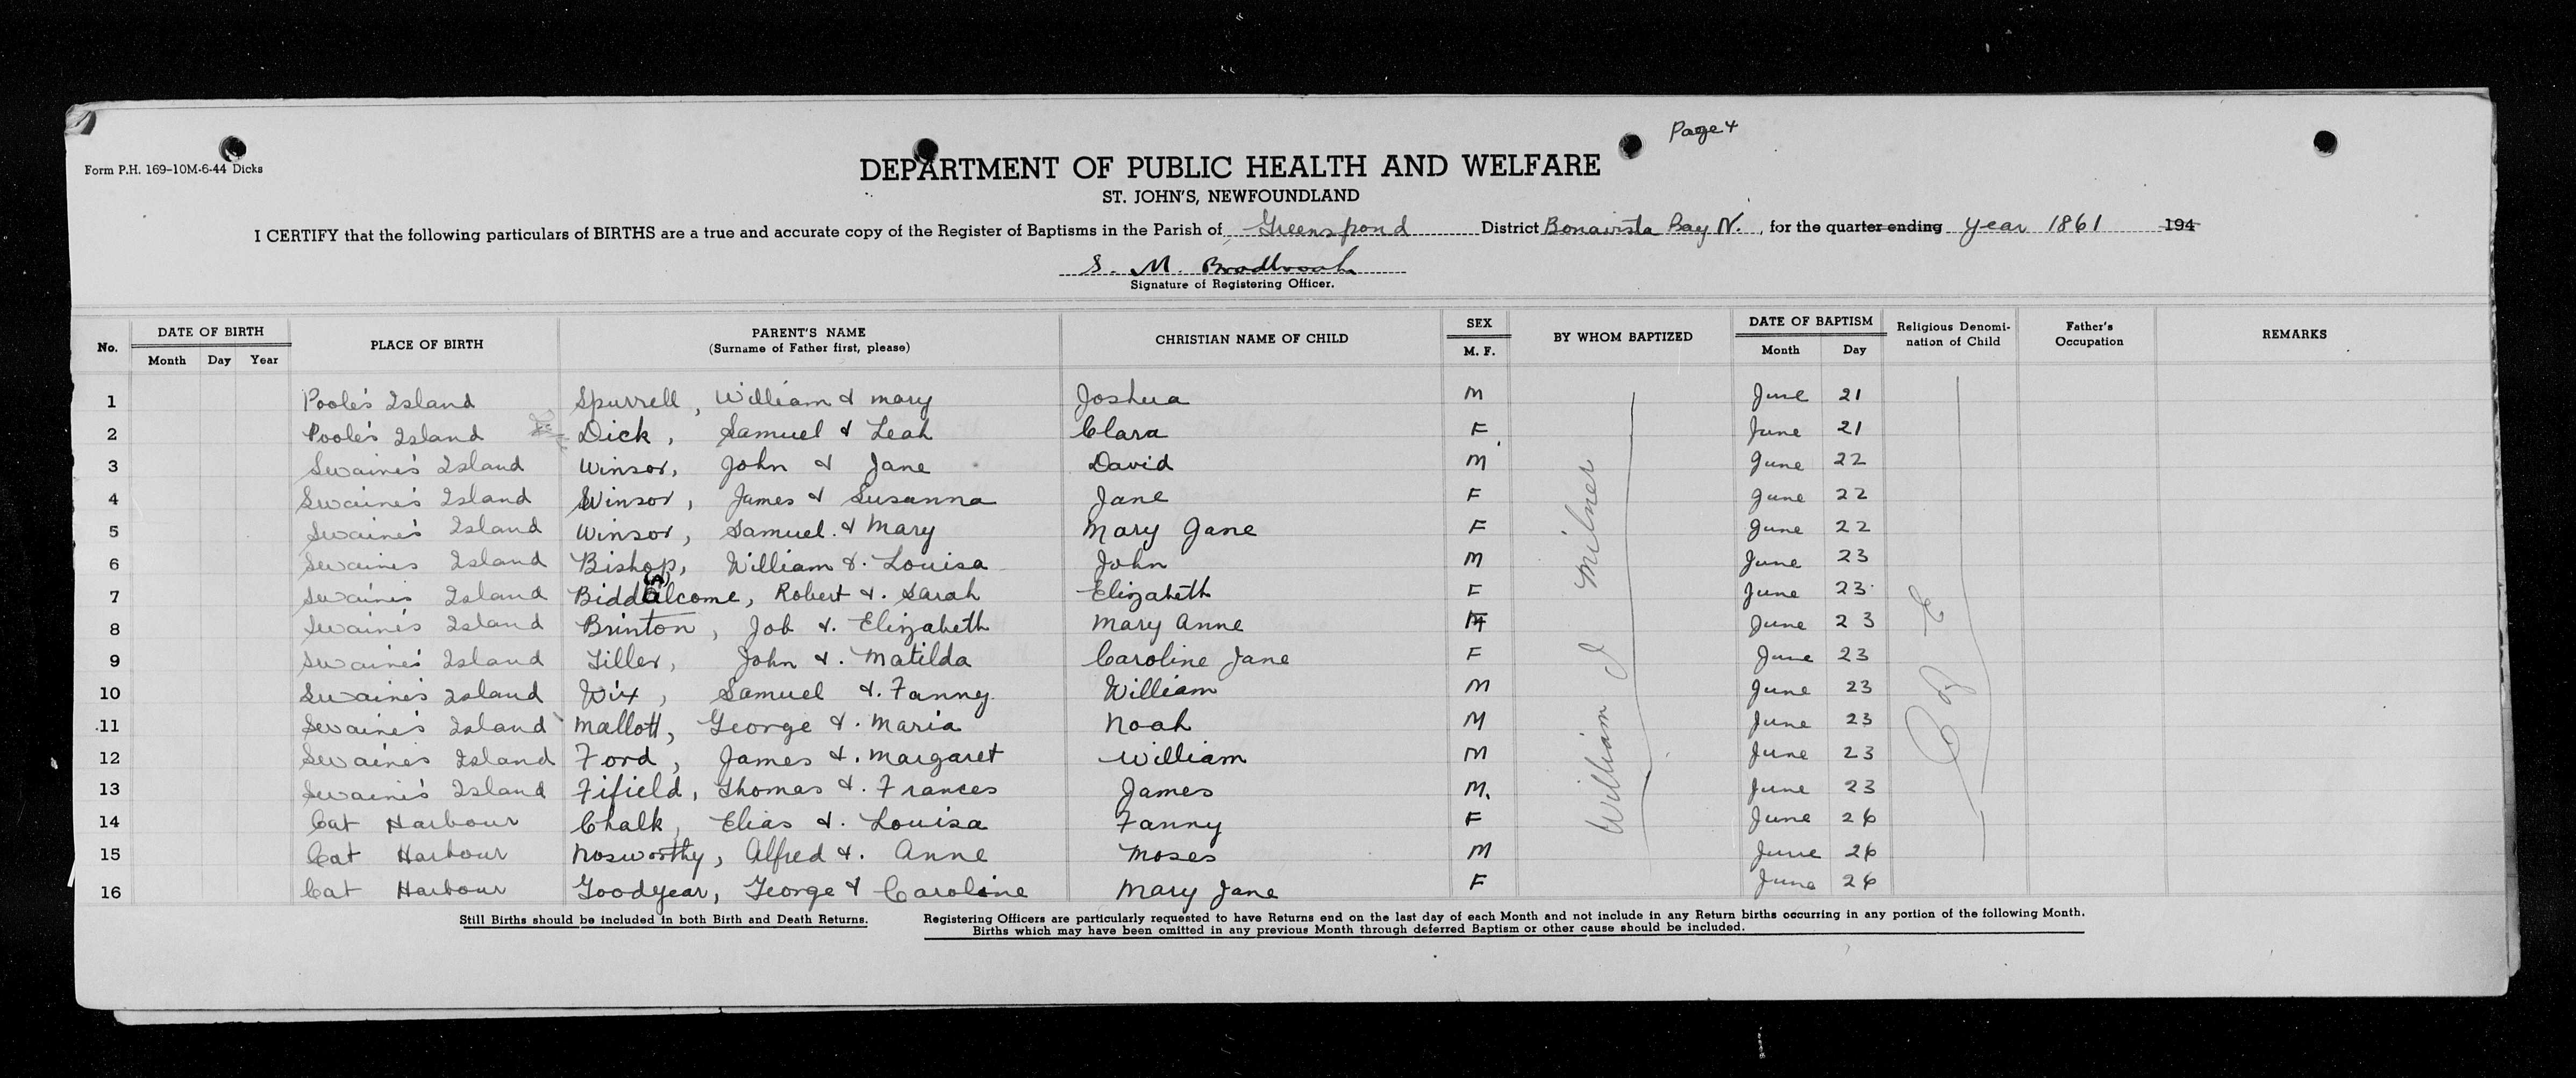 Page 4
Form P.H. 169-10M-6-44 Dicks
DEPARTMENT OF PUBLIC HEALTH AND WELFARE
ST. JOHN'S, NEWFOUNDLAND
I CERTIFY that the following particulars of BIRTHS are a true and accurate copy of the Register of Baptisms in the Parish of Greenspond District Bonavista Bay N., for the quarter ending year 1861 194
S. M. Bradbrook
Signature of Registering Officer.
No. DATE OF BIRTH Month Day Year PLACE OF BIRTH PARENT'S NAME (Surname of Father first, please) CHRISTIAN NAME OF CHILD SEX M. F. BY WHOM BAPTIZED DATE OF BAPTISM Month Day Religious Denomi-nation of Child Father's Occupation REMARKS
1 Poole's Island Spurrell, William & Mary Joshua M June 21
2 Poole's Island Dick, Samuel & Leah Clara F June 21
3 Swaine's Island Winsor, John & Jane David M June 22
4 Swaine's Island Winsor, James & Susanna Jane F June 22
5 Swaine's Island Winsor, Samuel & Mary Mary Jane F June 22
6 Swaine's Island Bishop, William & Louisa John M June 23
7 Swaine's Island Biddlecome, Robert & Sarah Elizabeth F June 23
8 Swaine's Island Brinton, Job & Elizabeth Mary Anne F June 23
9 Swaine's Island Tiller, John & Matilda Caroline Jane F June 23
10 Swaine's Island Wix, Samuel & Fanny William M June 23
11 Swaine's Island Mallott, George & Maria Noah M June 23
12 Swaine's Island Ford, James & Margaret William M June 23
13 Swaine's Island Fifield, Thomas & Frances James M. June 23
14 Cat Harbour Chalk, Elias & Louisa Fanny F June 26
15 Cat Harbour Nosworthy, Alfred & Anne Moses M June 26
16 Cat Harbour Goodyear, George & Caroline Mary Jane F June 26
William J Milner
C of E
Still Births should be included in both Birth and Death Returns.
Registering Officers are particularly requested to have Returns end on the last day of each Month and not include in any Return births occurring in any portion of the following Month.
Births which may have been omitted in any previous Month through deferred Baptism or other cause should be included.